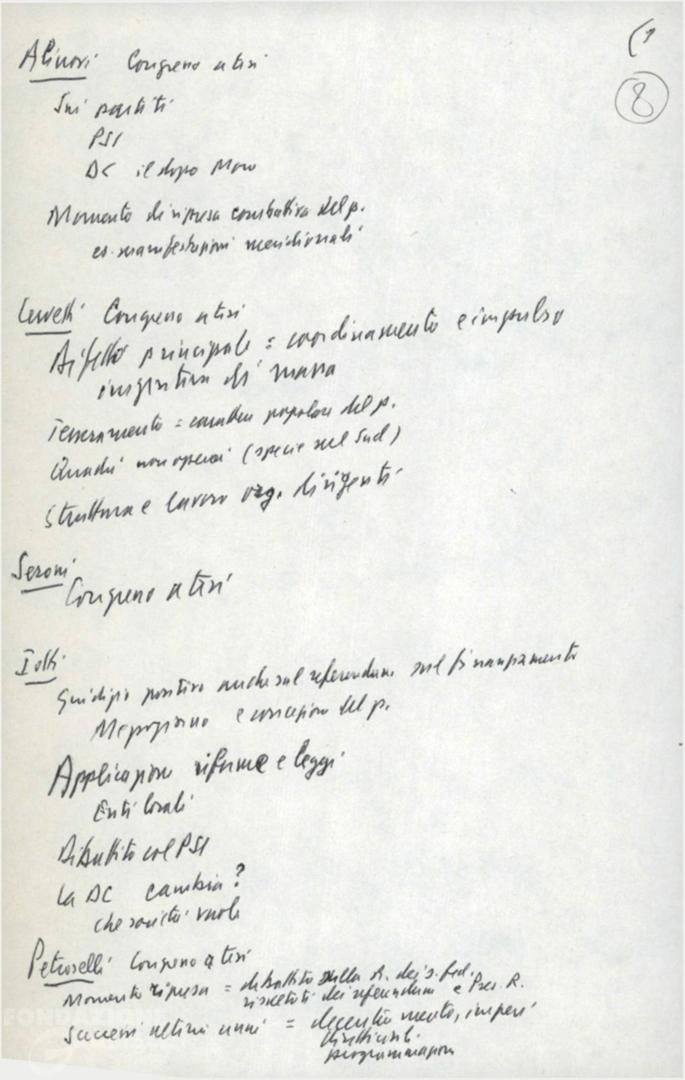 (1
8
Alinovi Congresso a tesi
Sui partiti
PSI
DC il dopo Moro
Momento di ripresa combattiva del p.
es. manifestazioni meridionali
Cervetti Congresso a tesi
Difetto principale = coordinamento e impulso
iniziativa di massa
Tesseramento = carattere popolare del p.
Quadri non operai (specie nel Sud)
Struttura e lavoro org. dirigenti
Seroni
Congresso a tesi
Iotti
Giudizio positivo anche sul referendum sul finanziamento
Mezzogiorno e concezione del p.
Applicazione riforme e leggi
Enti locali
Dibattito col PSI
La DC cambia?
che società vuole
Petroselli Congresso a tesi
Momento ripresa = dibattito sulla R. dei s. fed.
risultati dei referendum e Pres. R.
Successi ultimi anni = decentramento, imperi
programmazione
FONDAZIONE